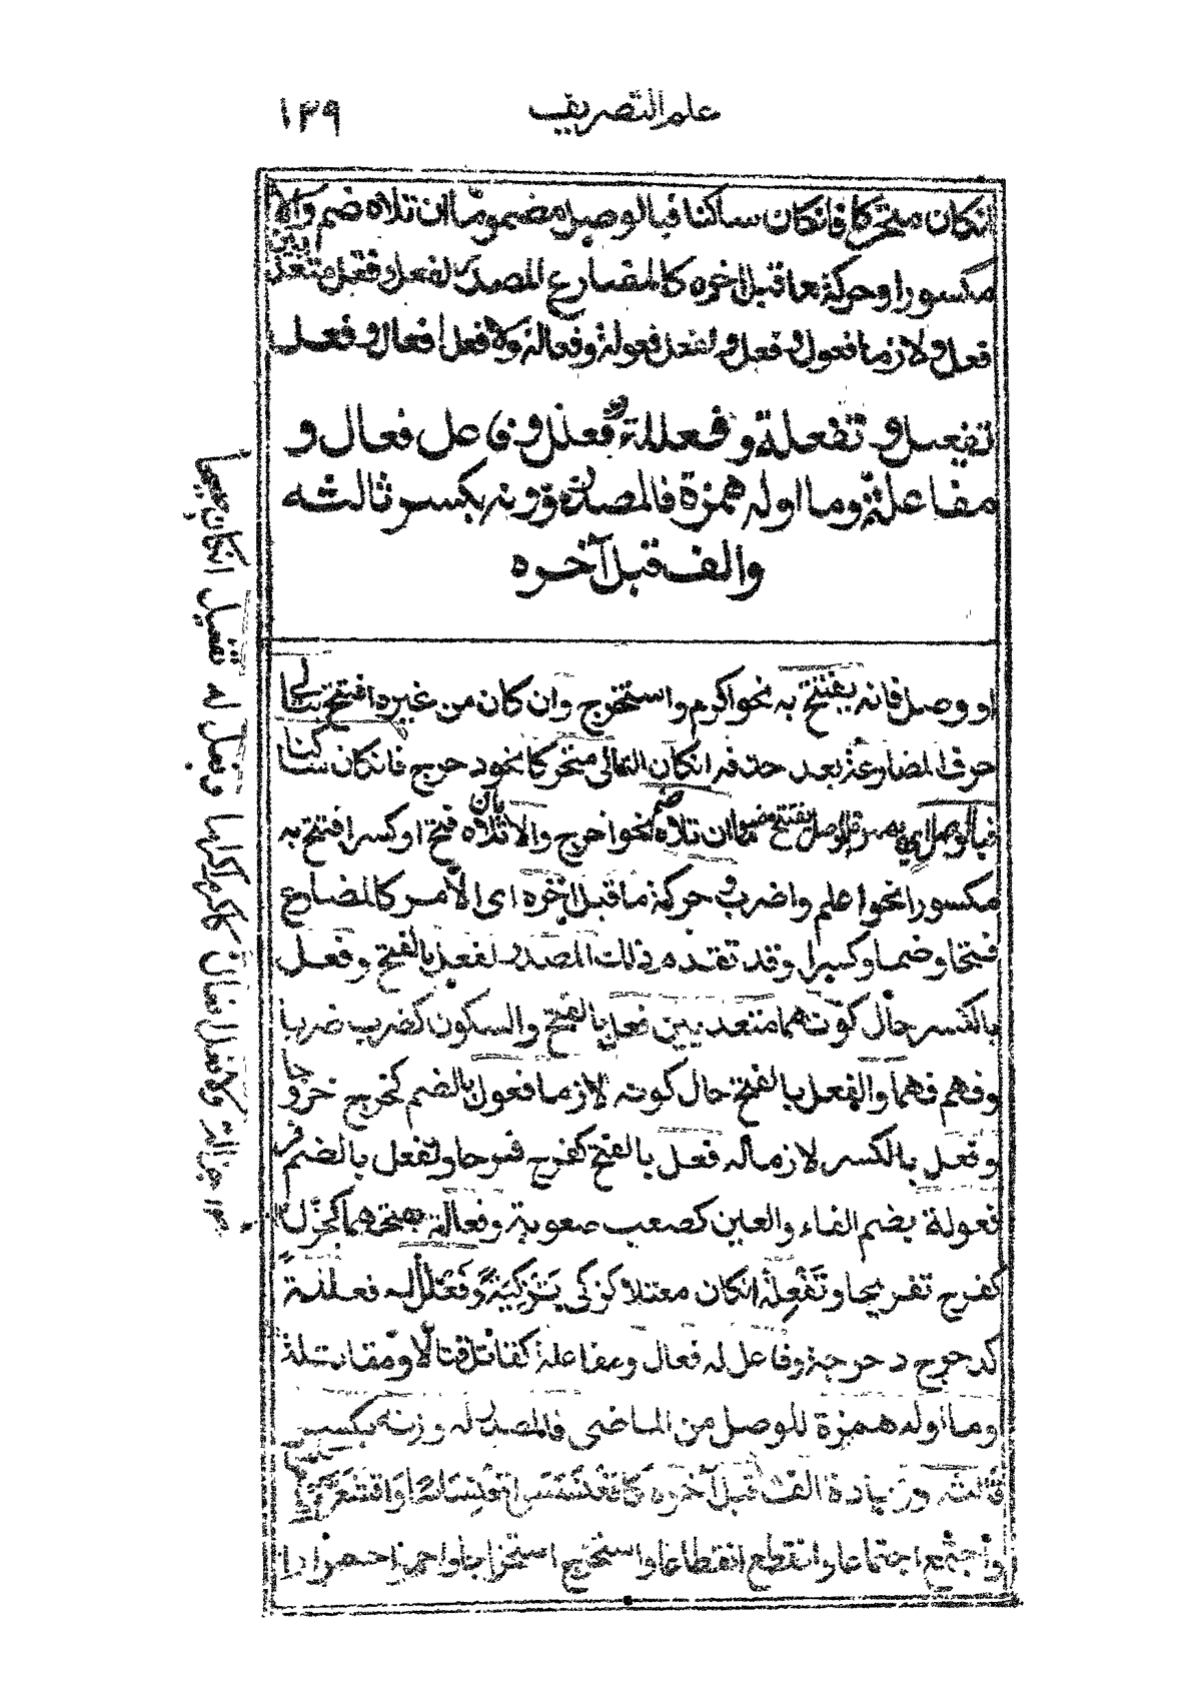 علم التصريف
١٣٩
انكان متحركا فانكان ساكنا فبالوصل مضموما ان تلاه ضم والا
مكسورا وحركة ما قبل اخره كالمضارع المصدر لفعل وفعل متعديين
فعل ولازما فعول وفعل ولفعل فعولة وفعالة ولافعل افعال وفعل
تفعيل وتفعلة وفعللة فعلل وفاعل فعال و
مفاعلة وما اوله همزة فالمصدر وزنه بكسر ثالثه
والف قبل آخره
او وصل فانه يفتتح به نحو اكرم واستخرج وان كان من غيره افتتح بتالي
حرف المضارعة بعد حذفه انكان التالي متحركا نحو دحرج فانكان ساكنا
فبالوصل اي بهمزة الوصل يفتتح مضموما ان تلاه ضم نحو اخرج والا بان تلاه فتح او كسر افتتح به
مكسورا نحو اعلم واضرب وحركة ما قبل اخره اى الامر كالمضارع
فتحا وضما وكسرا وقد تقدم ذلك المصدر لفعل بالفتح وفعل
بالكسر حال كونهما متعديين فعل بالفتح والسكون كضرب ضربا
وفهم فهما والفعل بالفتح حال كونه لازما فعول بالضم كخرج خروجا
وفعل بالكسر لازما له فعل بالفتح كفرح فرحا ولفعل بالضم
فعولة بضم الفاء والعين كصعب صعوبة وفعالة بفتحهما كجزل
كفرح تفريحا وتفعلة انكان معتلا كزكى تزكية وفعلل له فعللة
كدحرج دحرجة وفاعل له فعال ومفاعلة كقاتل قتالا ومقاتلة
وما اوله همزة للوصل من الماضى فالمصدر له وزنه بكسر
ثالثه وزيادة الف قبل آخره كاقعنسس اقعنساسا واقشعر
واجتمع اجتماعا وانقطع انقطاعا واستخرج استخراجا واحمر احمرارا